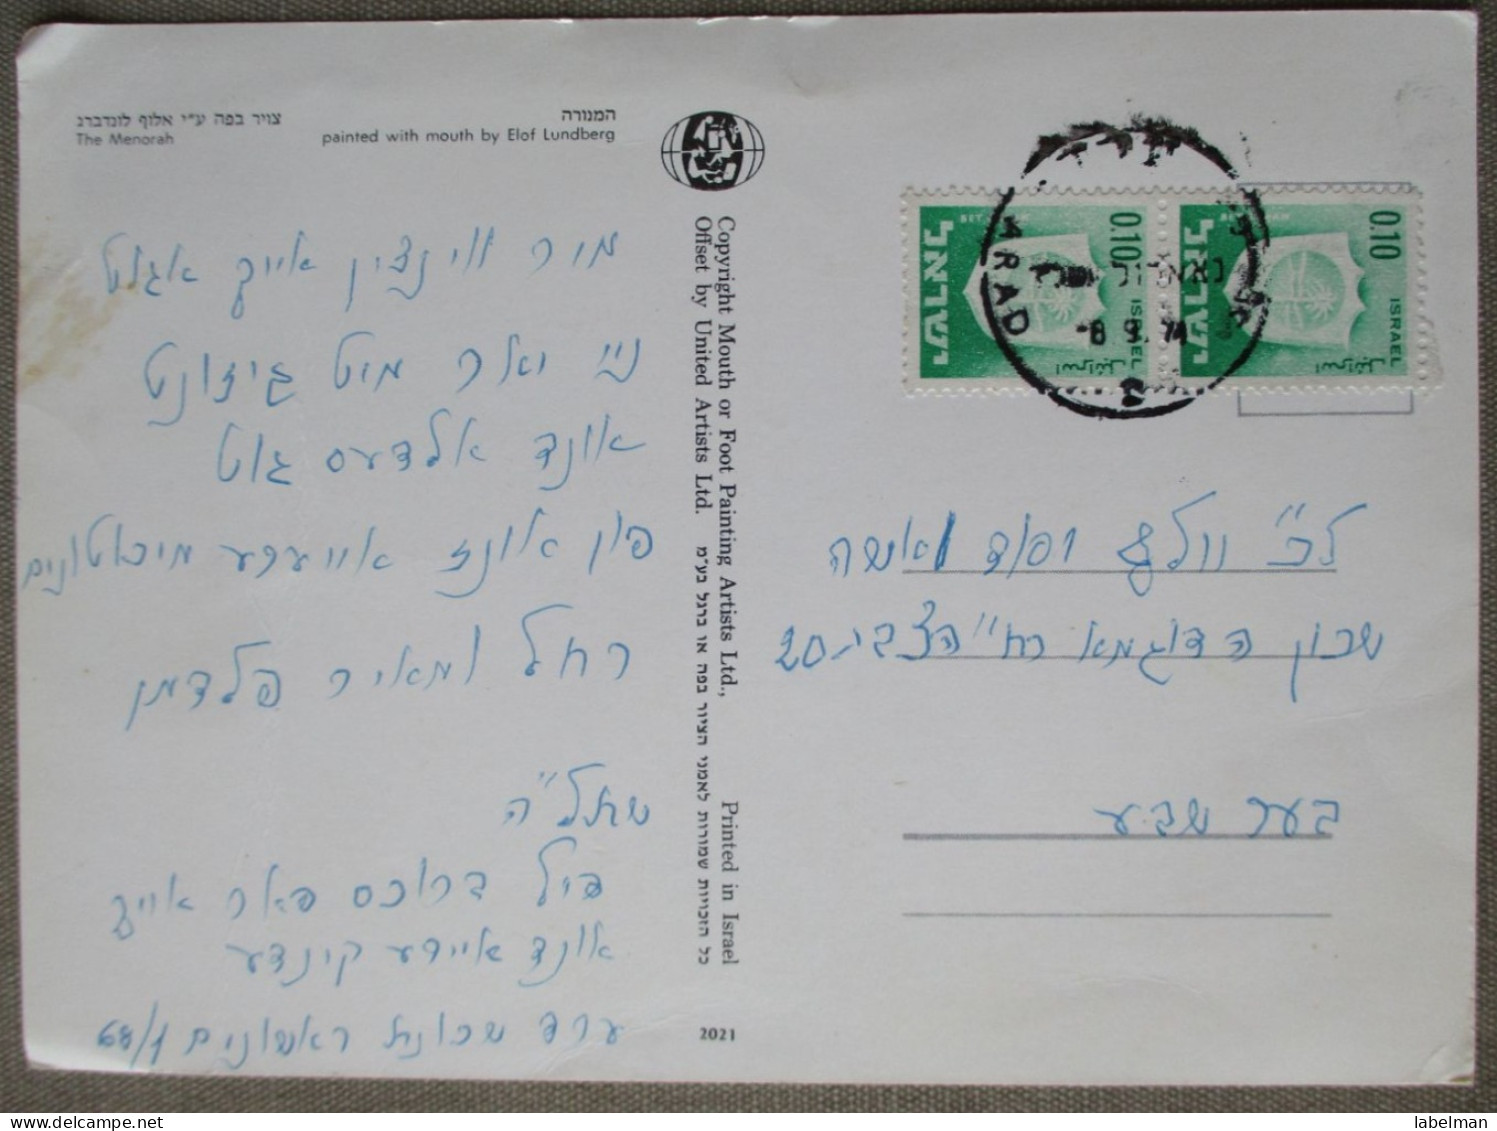 המנורה
צויר בפה ע״י אלוף לונדברג
The Menorah
painted with mouth by Elof Lundberg
מיר ווינצין אייך אגוט
ניי יאר מיט גיזונט
אונד אלדעס גוט
פון אונז אייערע
רחל ומאיר פלדמן
פיל פאר אייך
אונד אייערע קינדער
ערד שכונת ראשונים 68/1
Copyright Mouth or Foot Painting Artists Ltd.,
Offset by United Artists Ltd.
Printed in Israel
כל הזכויות שמורות לאמני הציור בפה או ברגל בע״מ
2021
0.10
ISRAEL
ישראל
0.10
ISRAEL
ישראל
ARAD
-8 9. 74
לכ׳׳ וולף ואשה
שכון הדוגמא רח׳׳ הצבי 20
בער שבע
labelman